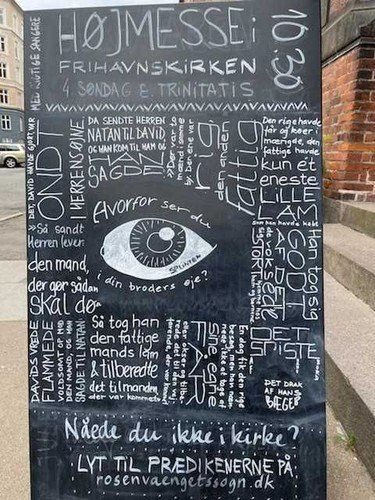 HØJMESSE i
10.30
FRIHAVNSKIRKEN
4 SØNDAG E. TRINITATIS
MED RIGTIGE SANGERE
DET DAVID HAVDE GJORT, VAR
ONDT
I HERRENS ØJNE.
DA SENDTE HERREN
NATAN TIL DAVID,
OG HAN KOM TIL HAM OG
SAGDE
»Der var to
mænd i samme
by. Den ene var
rig
den anden
fattig
Den rige havde
får og køer i
mængde, den
fattige havde
kun ét
eneste
LILLE
LAM
Som han havde købt
Han tog sig
GODT
AF DET
de voksede
STORT
DET
SPISTE
DET DRAK
AF HANS
BÆGER
En dag fik den rige
besøg, men han
Så tog han
den fattige
mands lam
& tilberedte
det til manden
der var kommet.
DAVIDS VREDE
FLAMMEDE
VOLDSOMT OP MOD
DEN MAND, OG HAN
SAGDE TIL NATAN
»Så sandt
Herren lever
den mand,
der gør sådan
skal dø
Hvorfor ser du
SPLINTEN
i din broders øje?
Nåede du ikke i kirke?
LYT TIL PRÆDIKENERNE PÅ
rosenvaengetssogn.dk